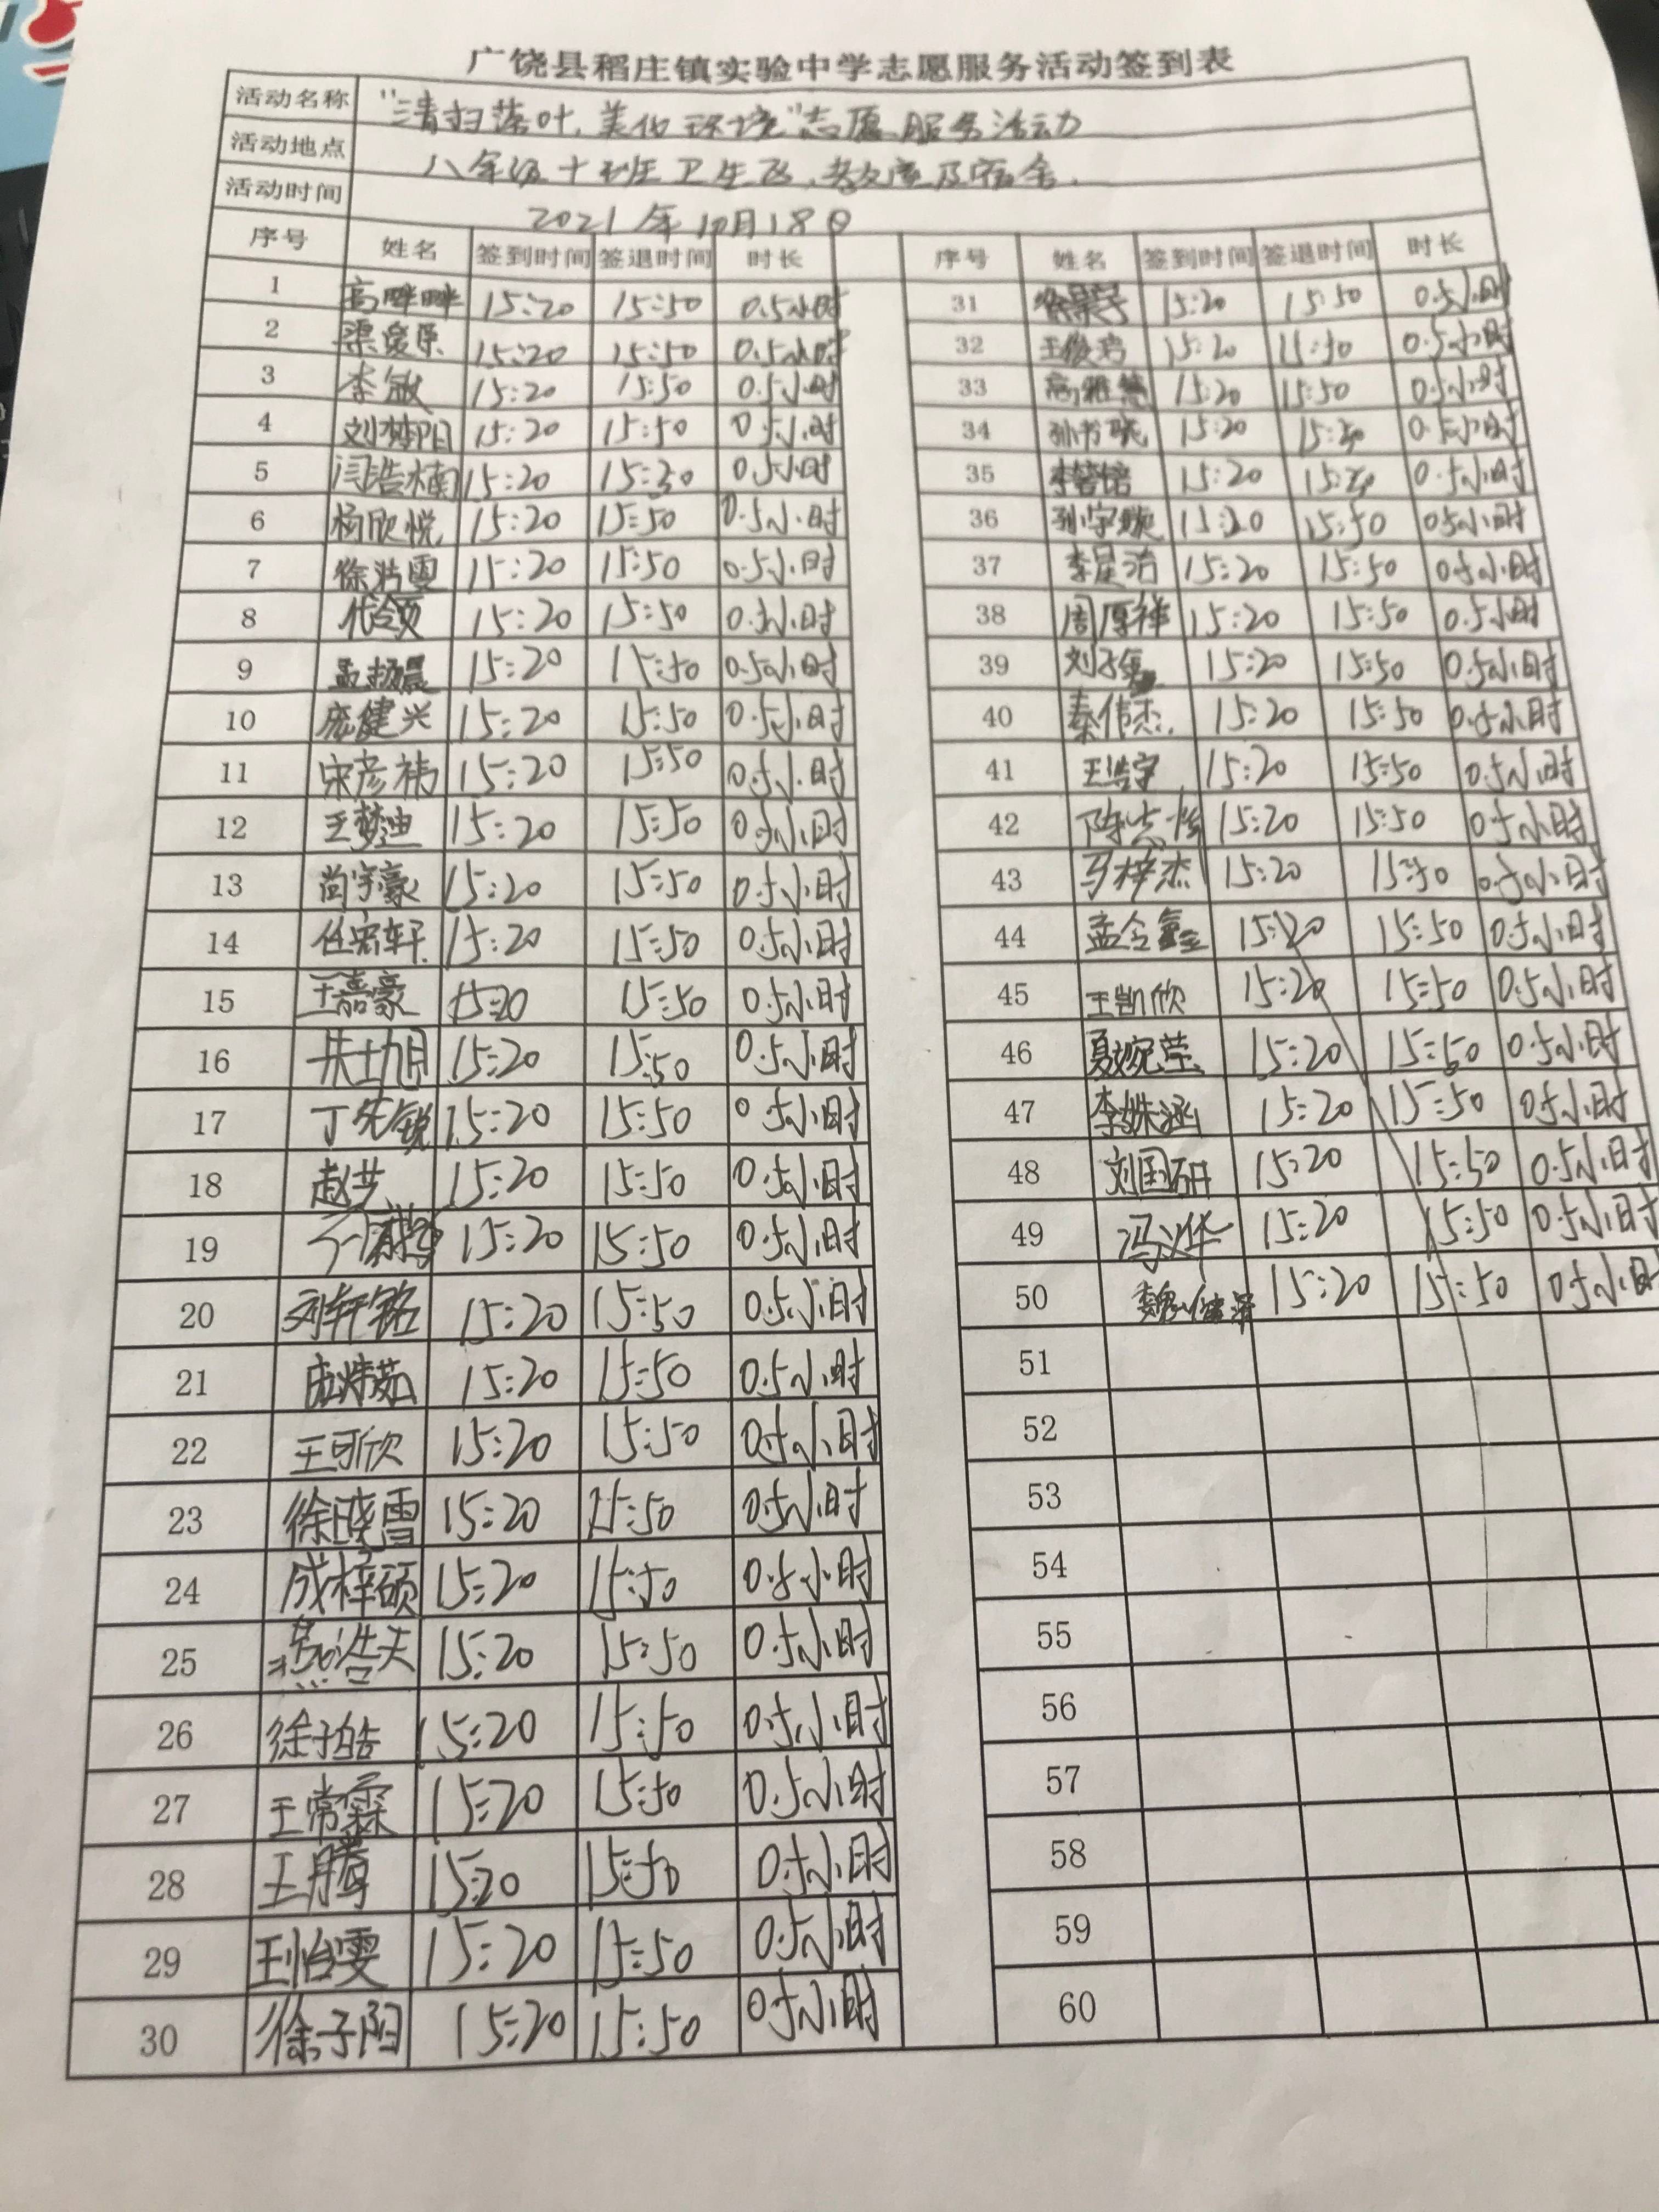 广饶县稻庄镇实验中学志愿服务活动签到表
活动名称 "清扫落叶,美化环境"志愿服务活动
活动地点 八年级十班卫生区,教室及宿舍.
活动时间 2021年10月18日
序号 姓名 签到时间 签退时间 时长 序号 姓名 签到时间 签退时间 时长
1 高畔畔 15:20 15:50 0.5小时 31 15:20 15:50 0.5小时
2 15:20 15:50 0.5小时 32 王俊 15:20 15:50 0.5小时
3 李敏 15:20 15:50 0.5小时 33 高雅慧 15:20 15:50 0.5小时
4 刘梦阳 15:20 15:50 0.5小时 34 孙书晓 15:20 0.5小时
5 闫浩楠 15:20 0.5小时 35 李 15:20 0.5小时
6 杨欣悦 15:20 15:50 0.5小时 36 孙宇璇 15:20 15:50 0.5小时
7 徐浩雯 15:20 15:50 0.5小时 37 李星浩 15:20 15:50 0.5小时
8 代领 15:20 15:50 0.5小时 38 周厚祥 15:20 15:50 0.5小时
9 孟扬晨 15:20 15:50 0.5小时 39 刘子 15:20 15:50 0.5小时
10 庞健兴 15:20 15:50 0.5小时 40 秦伟杰 15:20 15:50 0.5小时
11 宋彦祎 15:20 15:50 0.5小时 41 王浩宇 15:20 15:50 0.5小时
12 王梦迪 15:20 15:50 0.5小时 42 陈 15:20 15:50 0.5小时
13 尚宇豪 15:20 15:50 0.5小时 43 马梓杰 15:20 15:50 0.5小时
14 任宏轩 15:20 15:50 0.5小时 44 孟令鑫 15:20 15:50 0.5小时
15 王嘉豪 15:20 15:50 0.5小时 45 王凯欣 15:20 15:50 0.5小时
16 朱士旭 15:20 15:50 0.5小时 46 聂婉莹 15:20 15:50 0.5小时
17 丁先锐 15:20 15:50 0.5小时 47 李姝涵 15:20 15:50 0.5小时
18 赵艺 15:20 15:50 0.5小时 48 刘国研 15:20 15:50 0.5小时
19 15:20 15:50 0.5小时 49 冯义华 15:20 15:50 0.5小时
20 刘轩铭 15:20 15:50 0.5小时 50 魏健泽 15:20 15:50 0.5小时
21 茹 15:20 15:50 0.5小时 51
22 王可欣 15:20 15:50 0.5小时 52
23 徐晓雪 15:20 15:50 0.5小时 53
24 成梓硕 15:20 15:50 0.5小时 54
25 燕浩天 15:20 15:50 0.5小时 55
26 徐子皓 15:20 15:50 0.5小时 56
27 王常霖 15:20 15:50 0.5小时 57
28 王腾 15:20 15:50 0.5小时 58
29 王怡雯 15:20 15:50 0.5小时 59
30 徐子阳 15:20 15:50 0.5小时 60